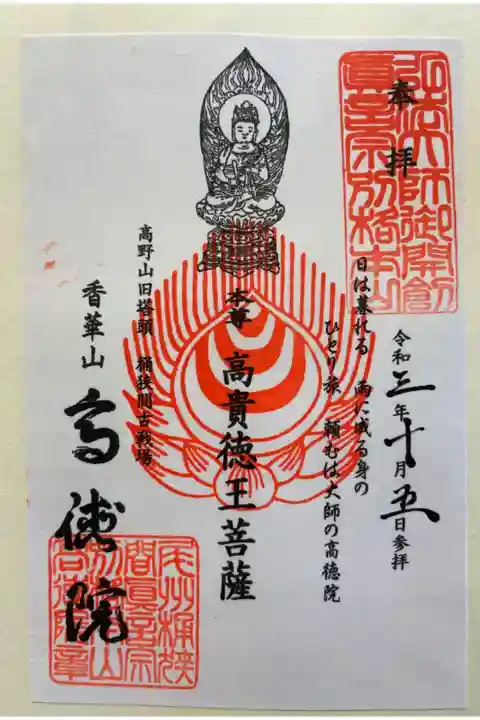 奉拝
弘法大師御開創
真言宗別格本山
令和三年十月五日参拝
日は暮れる　雨に成る身の
ひとり旅　頼むは大師の高徳院
本尊　高貴徳王菩薩
高野山旧塔頭　桶狭間古戦場
香華山　高徳院
尾州桶狭
間真言宗
別格本山
高徳院章